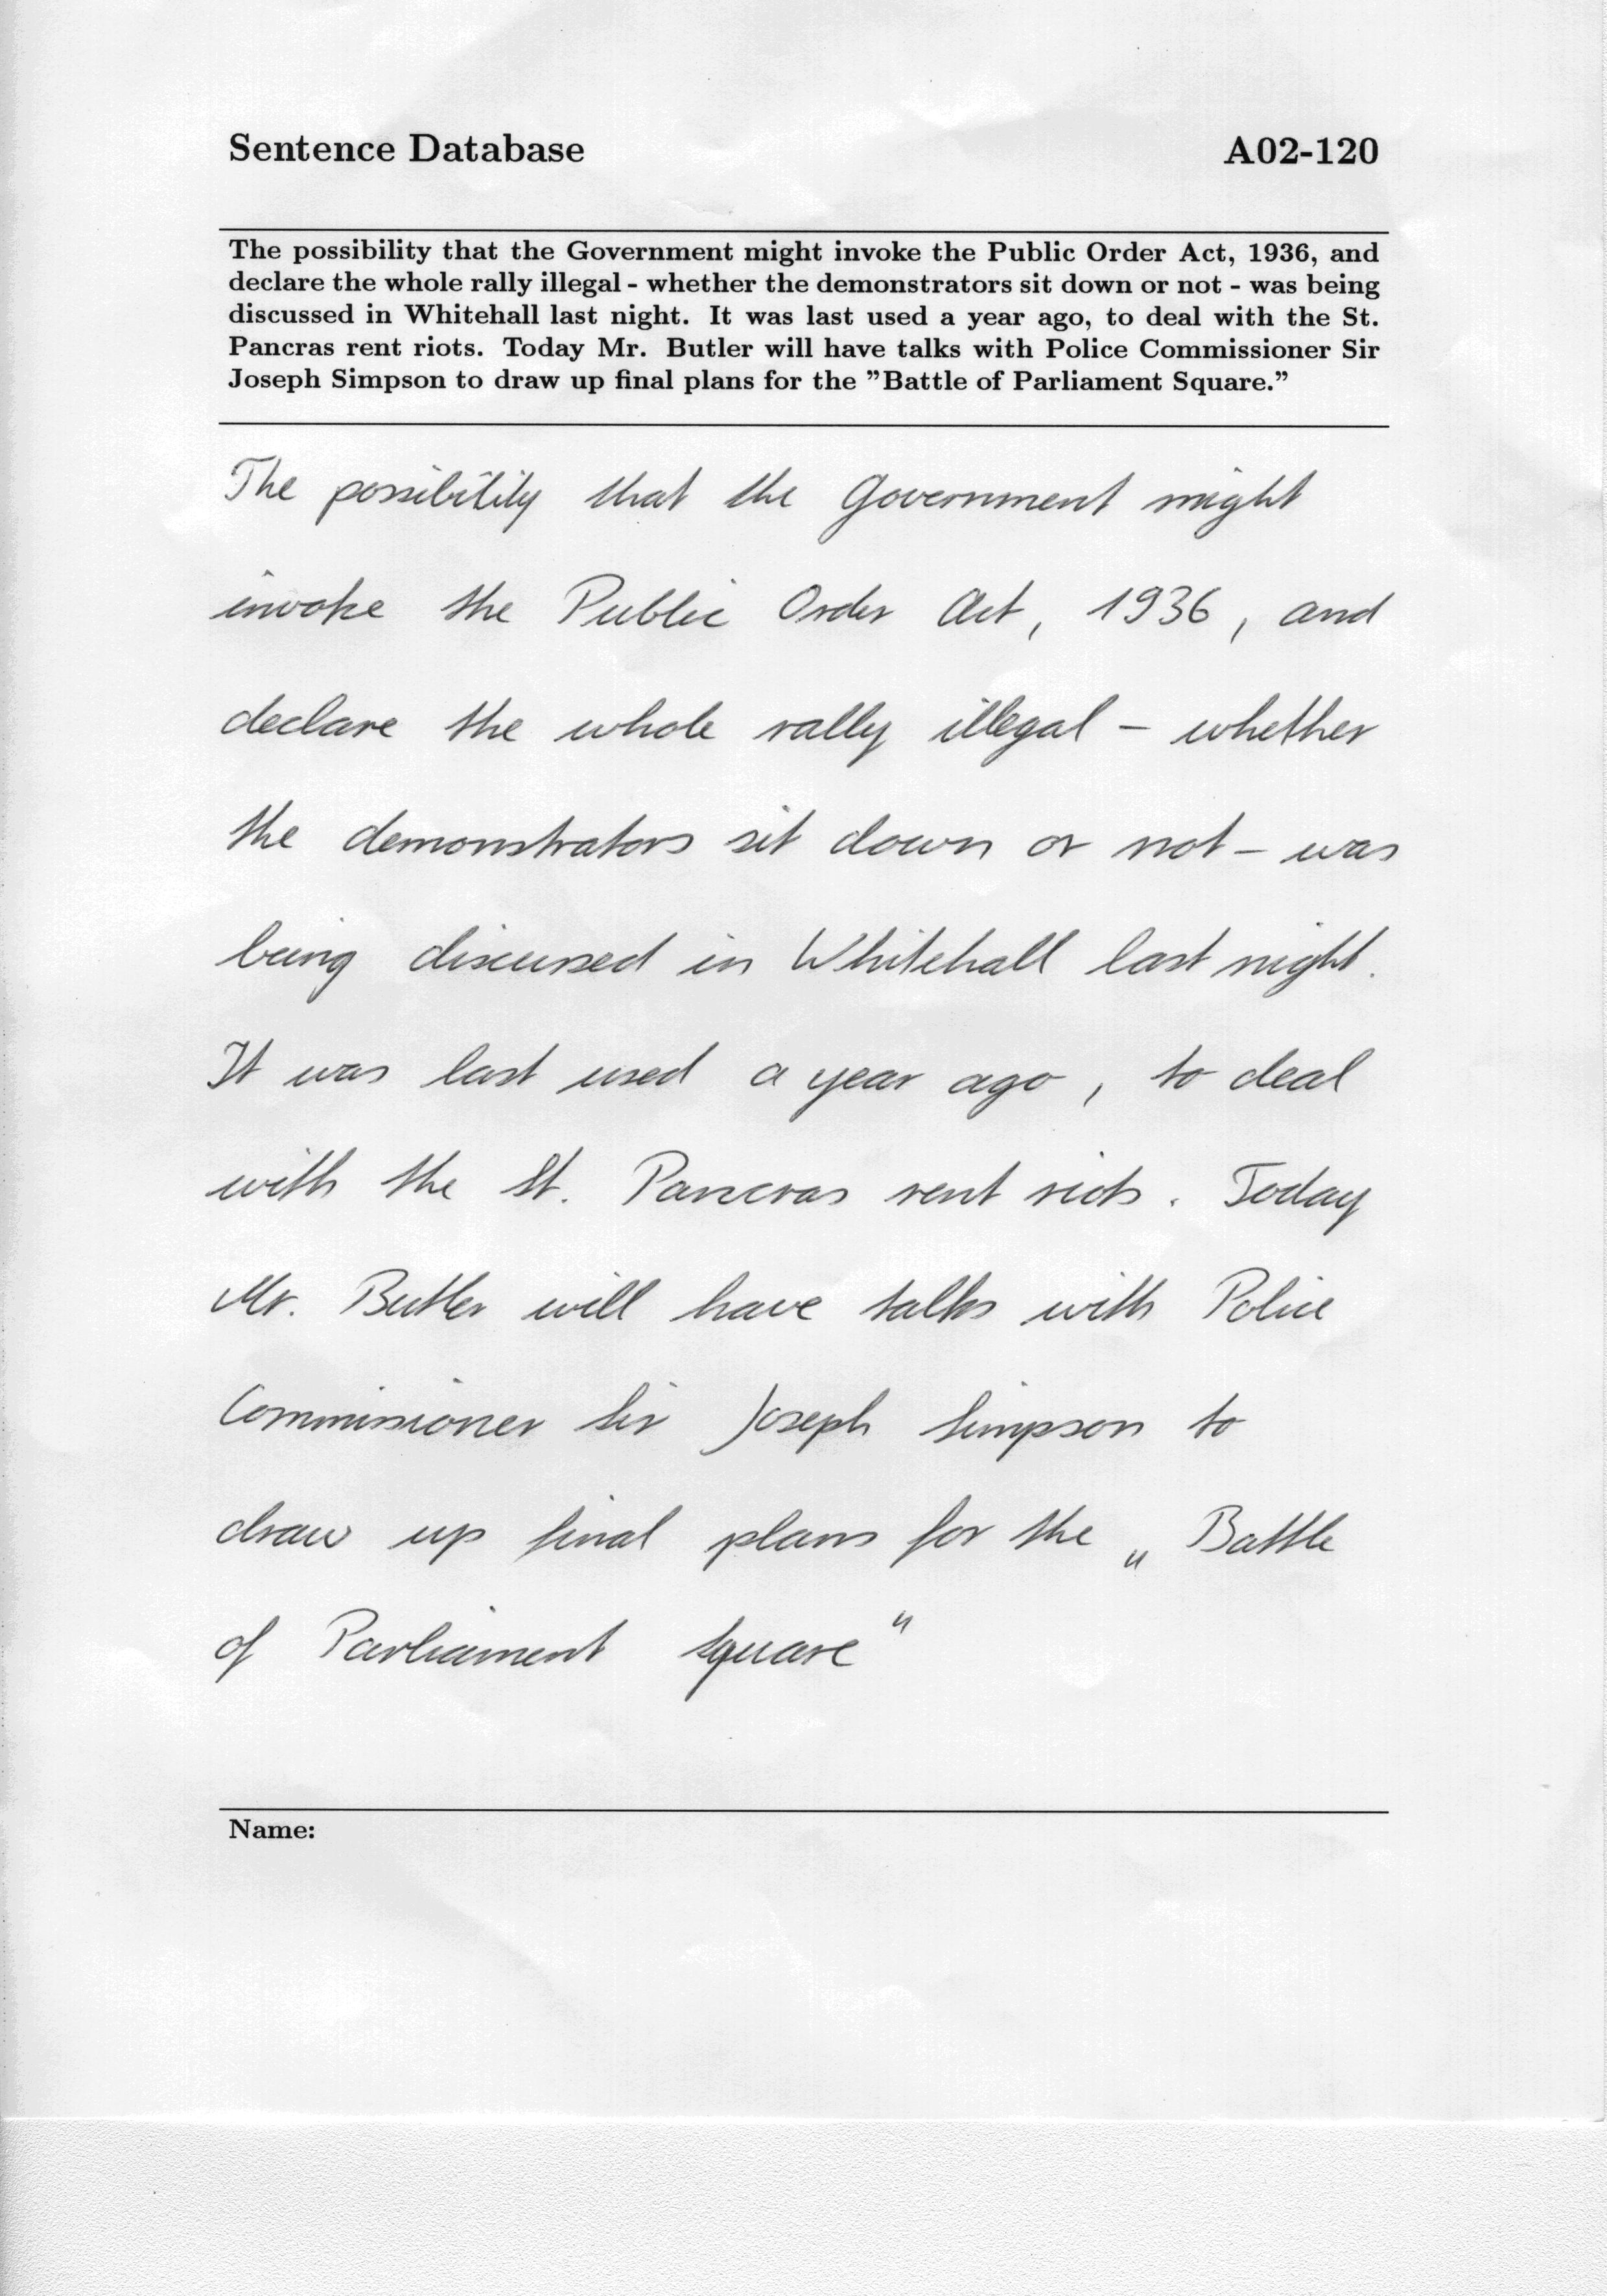 Sentence Database A02-120
The possibility that the Government might invoke the Public Order Act, 1936, and
declare the whole rally illegal - whether the demonstrators sit down or not - was being
discussed in Whitehall last night. It was last used a year ago, to deal with the St.
Pancras rent riots. Today Mr. Butler will have talks with Police Commissioner Sir
Joseph Simpson to draw up final plans for the ”Battle of Parliament Square.”
The possibility that the Government might
invoke the Public Order Act, 1936, and
declare the whole rally illegal - whether
the demonstrators sit down or not - was
being discussed in Whitehall last night.
It was last used a year ago, to deal
with the St. Pancras rent riots. Today
Mr. Butler will have talks with Police
Commissioner Sir Joseph Simpson to
draw up final plans for the „Battle
of Parliament Square“
Name: